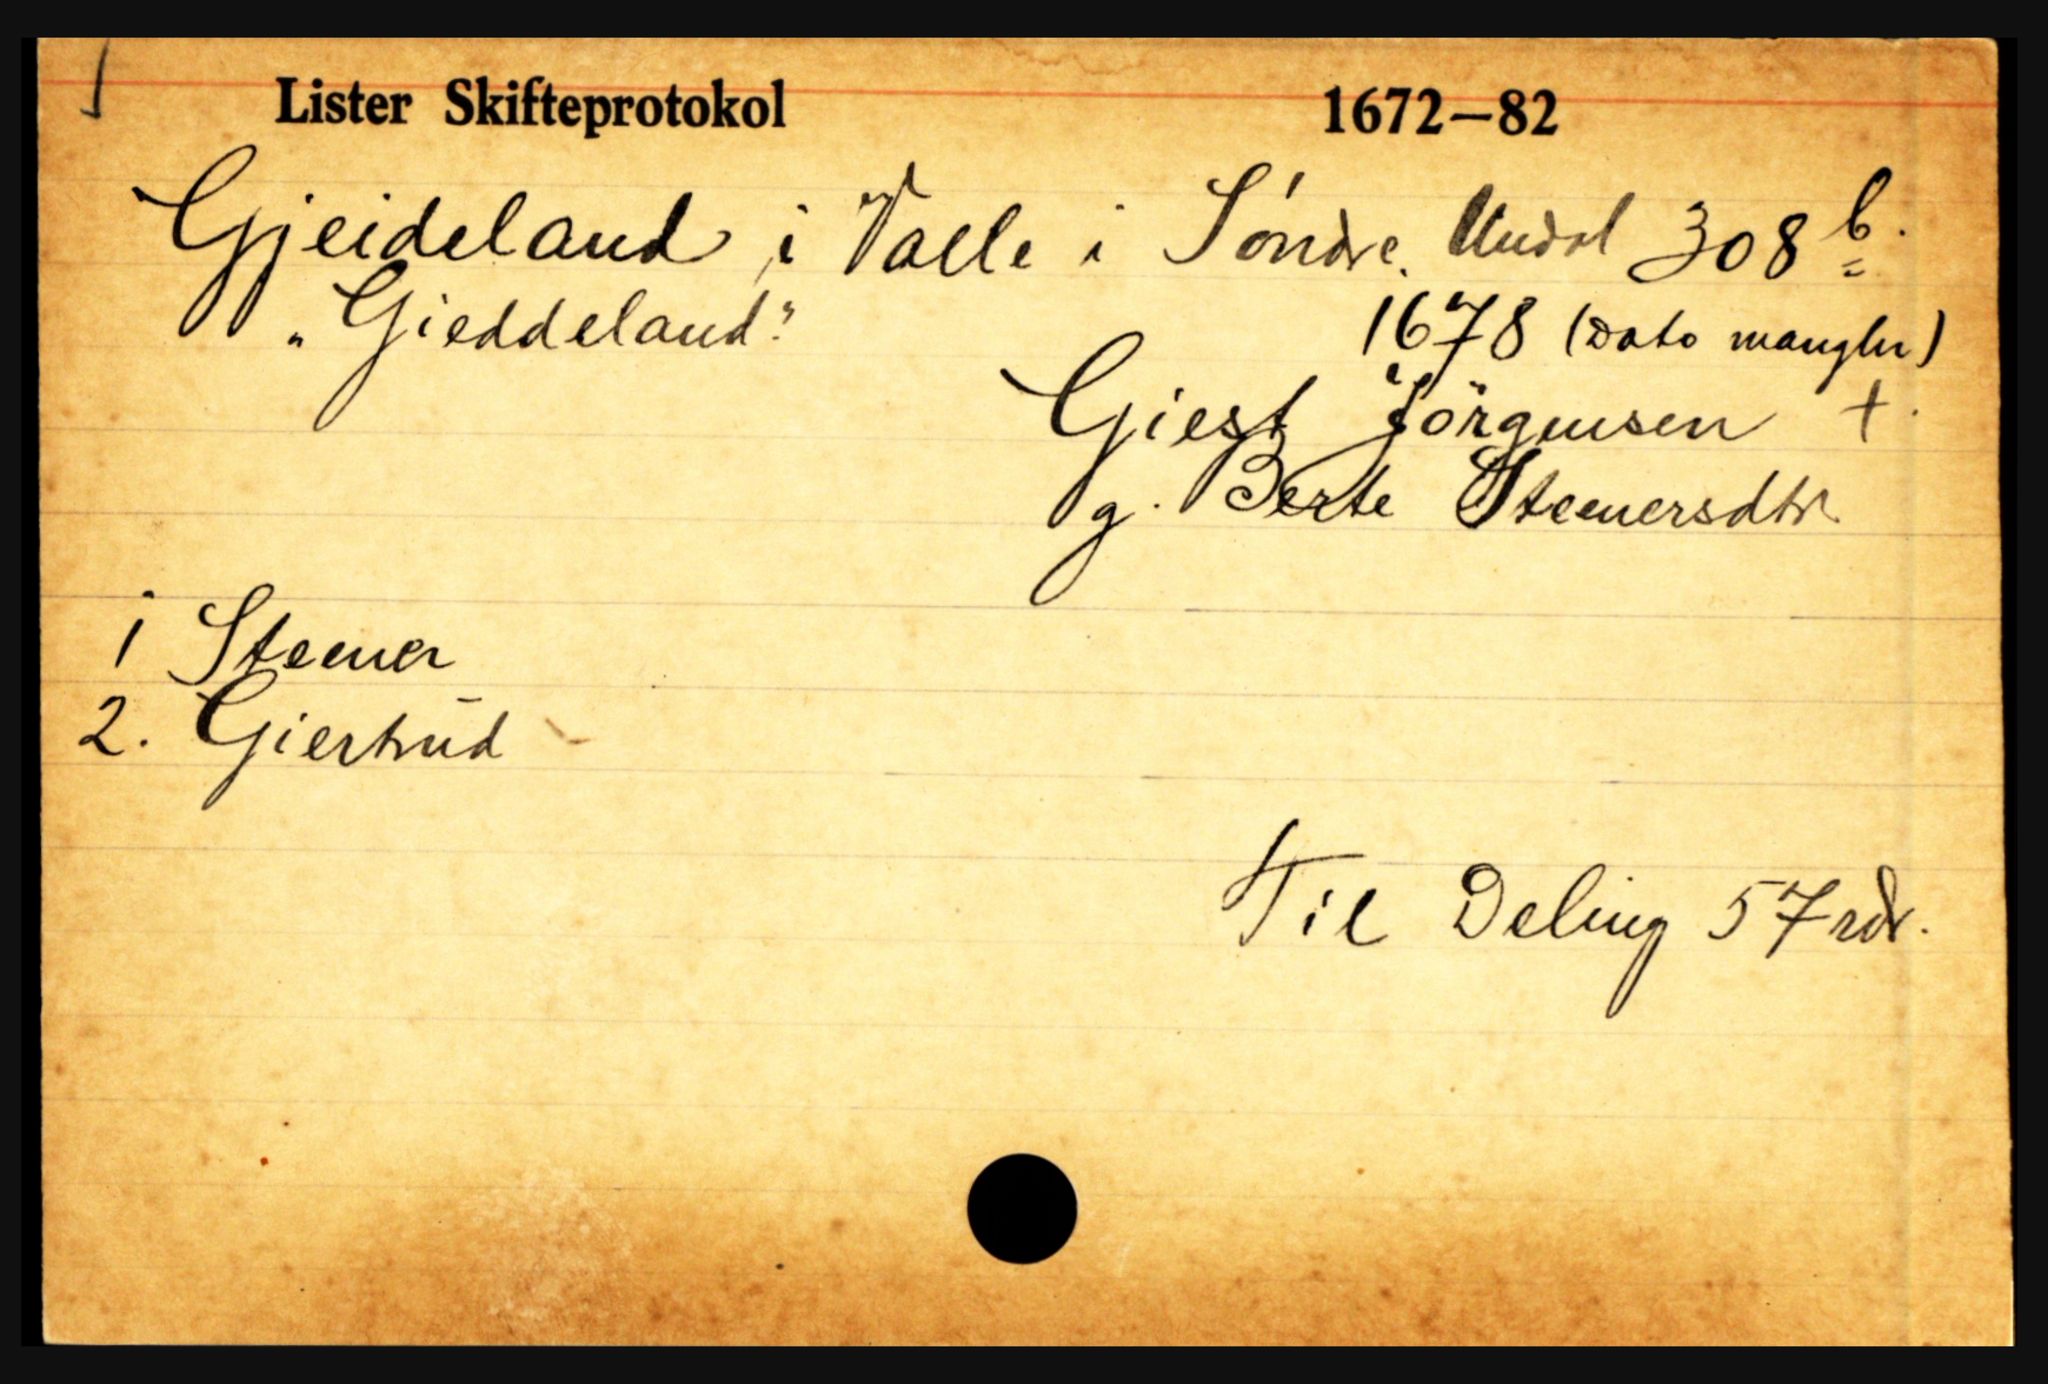 Lister Skifteprotokol 1672—82
Gjeideland i Valle i Söndre Undal 308 b.
„Gieddeland"
1678 (Dato mangler)
Giest Jörgensen +
g. Berte Steenersdtr
1 Steener
2. Giertrud
Til Deling 57 rdr.